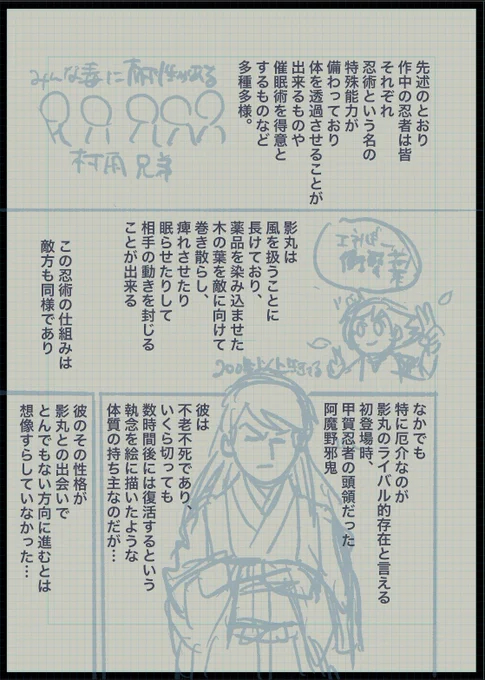 先述のとおり
作中の忍者は皆
それぞれ
忍術という名の
特殊能力が
備わっており
体を透過させることが
出来るものや
催眠術を得意と
するものなど
多種多様。
みんな毒に耐性がある
村雨兄弟
影丸は
風を扱うことに
長けており、
薬品を染み込ませた
木の葉を敵に向けて
巻き散らし、
痺れさせたり
眠らせたりして
相手の動きを封じる
ことが出来る
この忍術の仕組みは
敵方も同様であり
なかでも
特に厄介なのが
影丸のライバル的存在と言える
初登場時、
甲賀忍者の頭領だった
阿魔野邪鬼
彼は
不老不死であり、
いくら切っても
数時間後には復活するという
執念を絵に描いたような
体質の持ち主なのだが…
彼のその性格が
影丸との出会いで
とんでもない方向に進むとは
想像すらしていなかった…